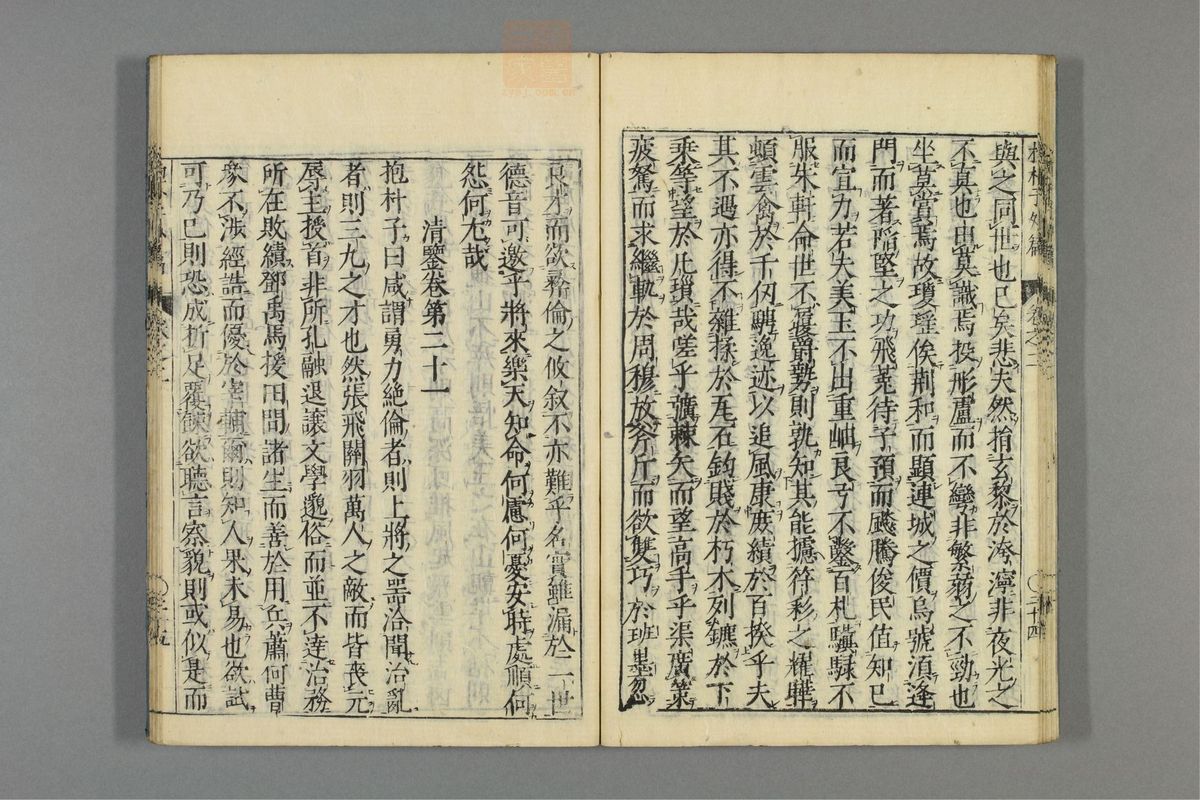 抱朴子外篇 卷之二 〇三十四
與之同世也已矣悲夫然捐玄黎於洿濘非夜光之
不真也由莫識焉投彤盧而不彎非繁弱之不勁也
坐莫賞焉故瓊瑤俟荆和而顯連城之價烏號湏逢
門而著陷堅之功飛菟待子預而飈騰俊民值知已
而宣力若夫美玉不出重岫良弓不鑿百札驥騄不
服朱軒命世不履爵勢則孰知其能攄符彩之耀曄
頓雲禽於千仭騁逸迹以追風康庶績於百揆乎夫
其不遇亦得不雜揉於瓦石鈞賤於朽木列鑣於下
乘等望於凡瑣哉嗟乎彍棘矢而望高手乎渠廣策
疲駑而求繼軌於周穆放斧斤而欲雙巧於班墨忽
良才而欲彛倫之攸敘不亦難乎名實雖漏於一世
德音可邀乎將來樂天知命何慮何憂安時處順何
怨何尤哉
清鑒卷第二十一
抱朴子曰咸謂勇力絶倫者則上將之噐洽聞治亂
者則三九之才也然張飛關羽萬人之敵而皆喪元
辱主授首非所孔融退讓文學邈俗而並不達治務
所在敗績鄧禹馬援田間諸生而善於用兵蕭何曹
參不涉經誥而優於宰輔爾則知人果未易也欲試
可乃已則恐成折足覆餗欲聽言察貌則或似是而